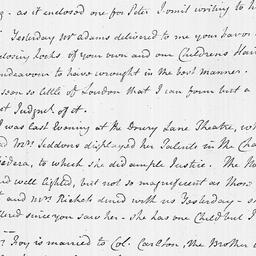 - as it enclosed one for Peter I omit writing to h
Yesterday Mr Adams delivered to me your favor
closing locks of your own and our Childrens Hair
endeavour to have wrought in the best manner.
seen so little of London that I can form but a
st Judgmt. of it.
I was last Evening at the Drury Lane Theatre, wh
Mrs. Siddons displayed her Talents in the Cha
, to which she did ample Justice. The
well lighted, but not so magnificent as Mon
and Mrs. Nichols dined with us Yesterday - s
since you saw her - she has one Child but I
is married to Col. Carlton, the Brother